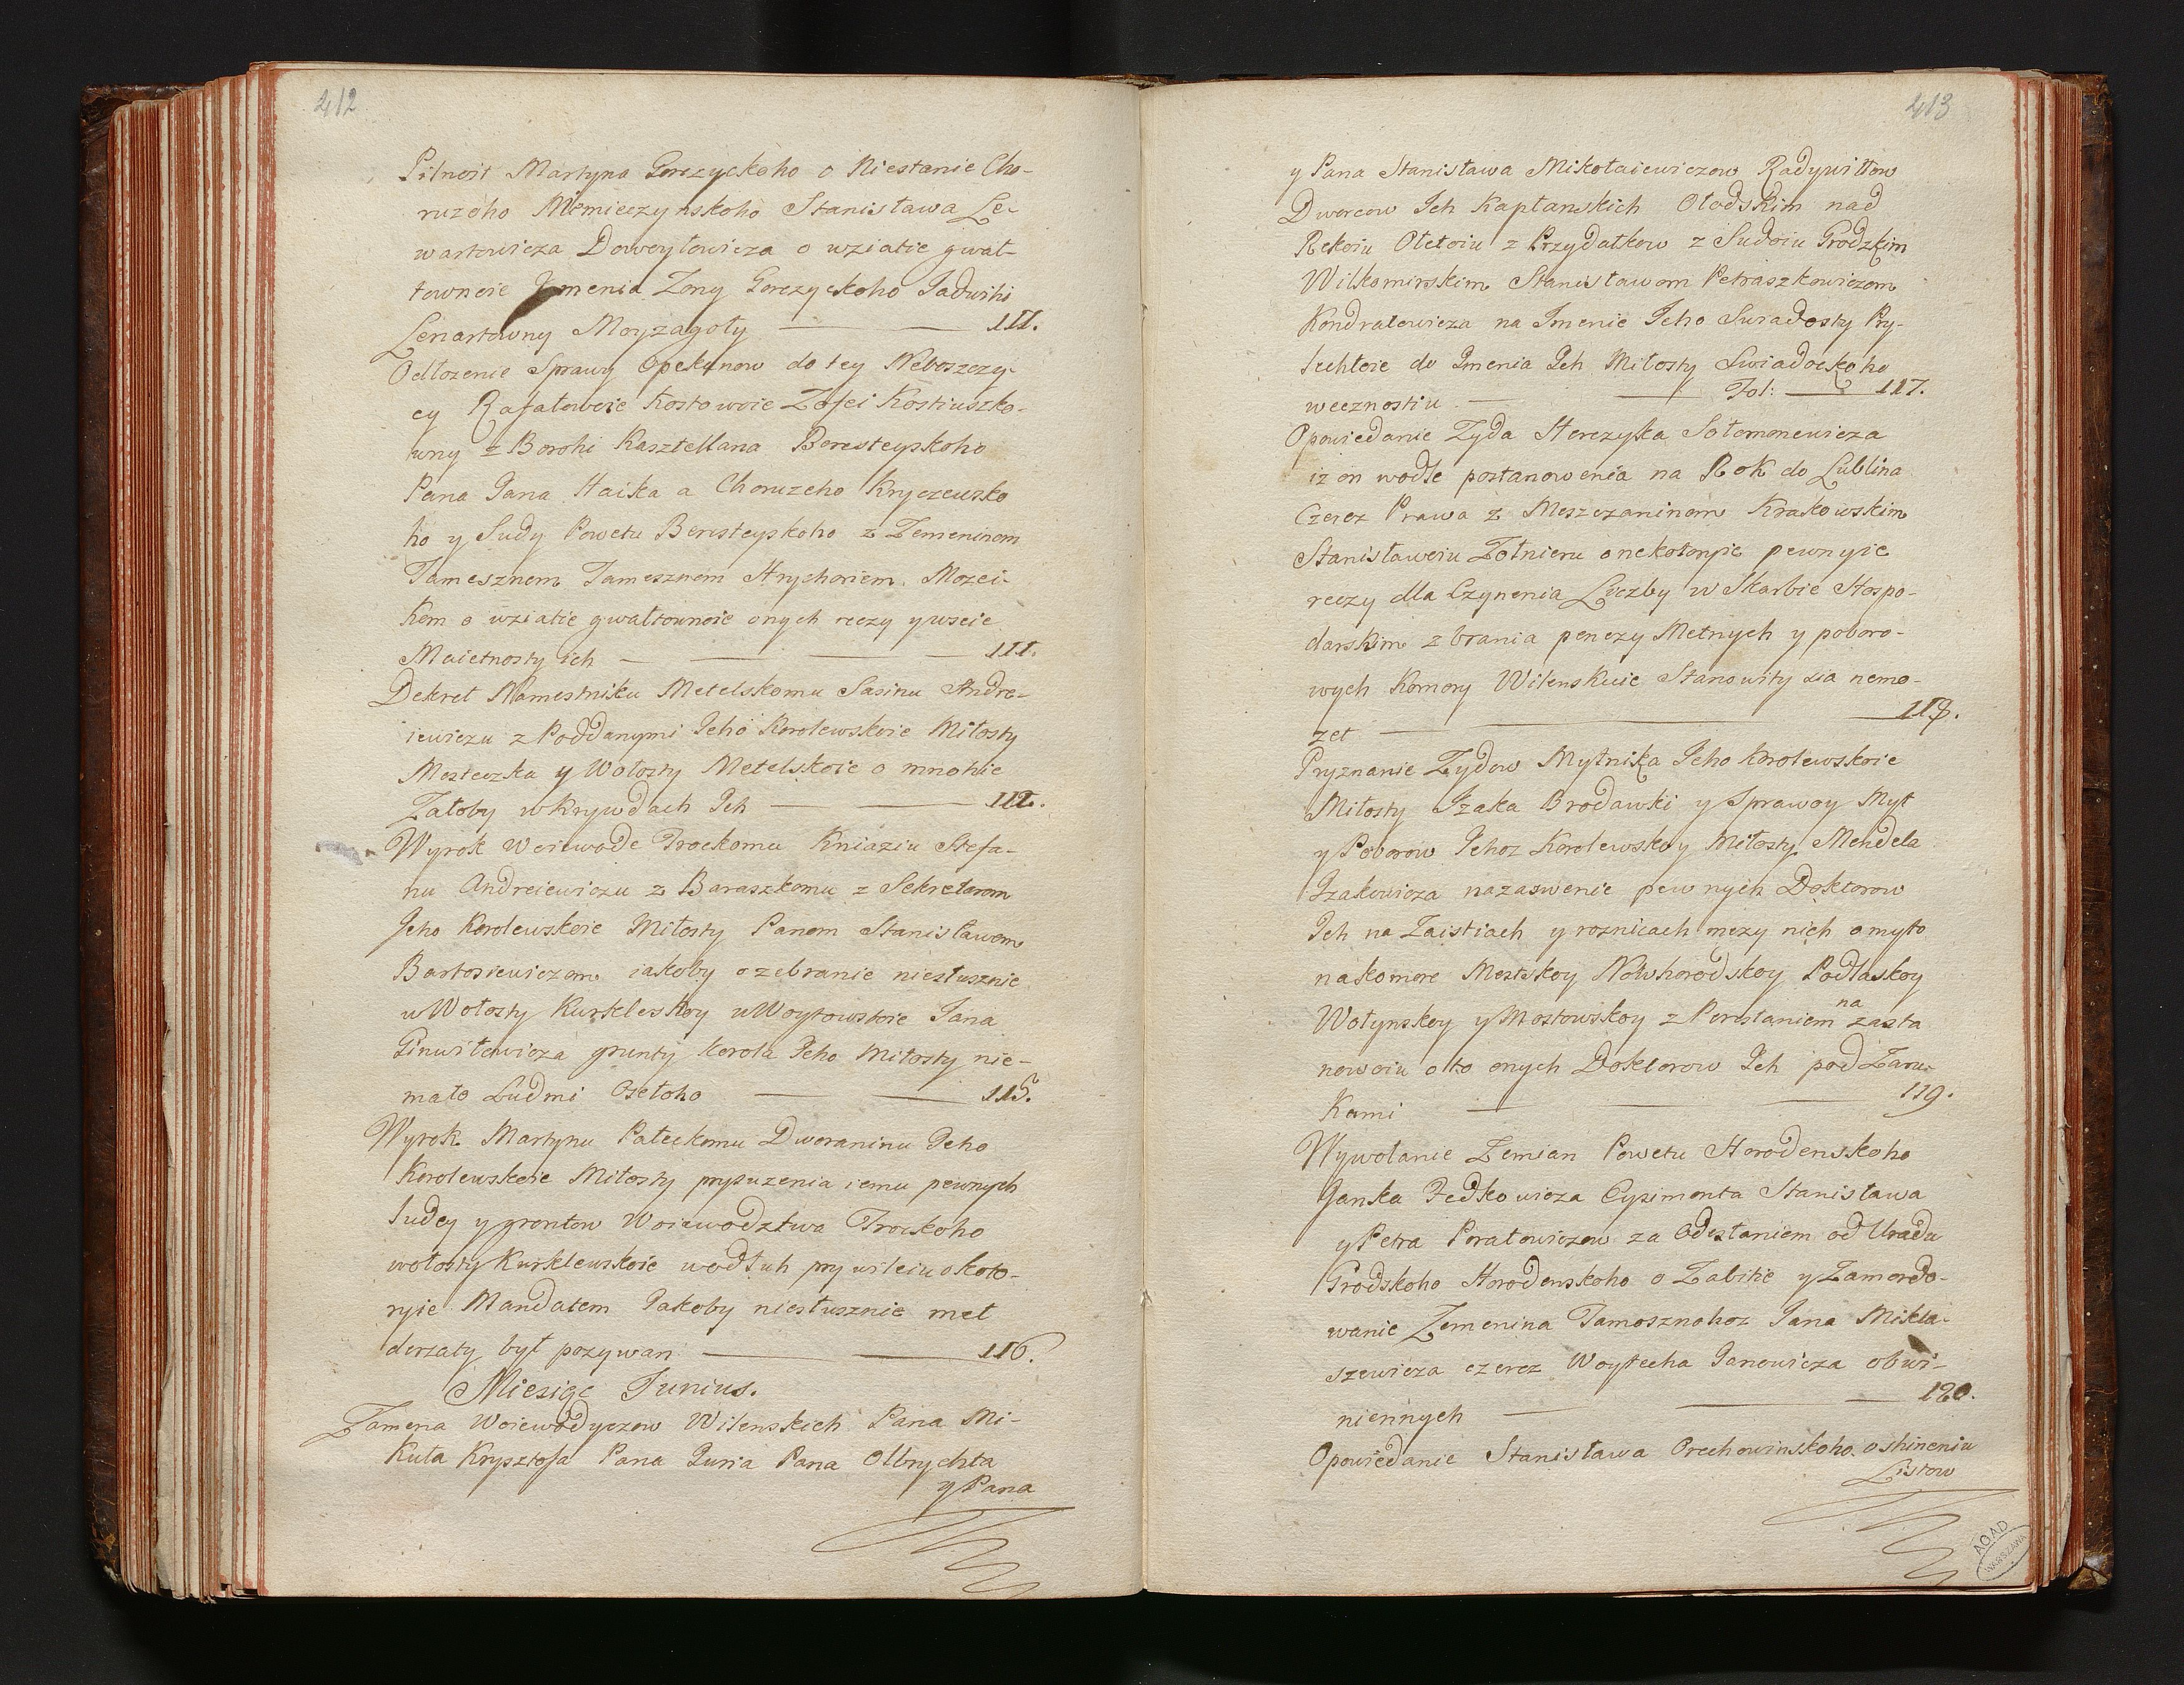 412
Pilnost Martyna Gorzyckoho o Niestanie Cho-
ruzoho Mścimieczynskoho Stanisława Le-
wartowicza Doweyłowicza o wziatie gwał-
townoie Jmenia Zony Gorzyckoho Jadwihi
Lenartowny Moyzagoły 111.
Odłozenie Sprawy Opekunow do tey Neboszczy-
cy Rafałowoie Kostowoie Zofei Kostiuszko-
wny z Borohi Kasztellana Beresteyskoho
Pana Jana Haika a Choruzeho Kryczewsko
ho y Sudy Powetu Beresteyskoho z Zemeninom
Tamesznem Tamesznem Hryhoriem Mozei-
kom o wziatie gwałtownoie onych reczy y wseie
Maietnosty ich 111.
Dekret Namestniku Metelskomu Sasinu Andre-
iewiczu z Poddanymi Jeho Korolewskoie Miłosty
Mesteczka y Wołosty Metelskoie o mnohie
Załoby w Krywdach Ich 112.
Wyrok Woiewode Trockomu Kniaziu Stefa-
nu Andreiewiczu z Baraszkomu z Sekretarom
Jeho Korolewskoie Miłosty Panom Stanisławom
Bartosiewiczom iakoby o zebranie niesłusznie
u Wołosty Kurkleskoy u Woytowstwie Jana
Ginwiłowicza grunty Korola Jeho Miłosty nie-
mało Ludmi Osełoho 115.
Wyrok Martynu Pałeckomu Dworaninu Jeho
Korolewskoie Miłosty prypuzenia iemu pewnych
Ludey y grontow Woiewodztwa Trockoho
wołosty Kurklewskoie wodłuh prywileiu o koto-
ryie Mandatem Jakoby niesłusznie met
derzaty był pozywan 116.
Miesiąc Junius.
Zamena Woiewodyczow Wilenskich Pana Mi-
kuła Krysztofa Pana Juria Pana Olbrychta
y Pana
413
y Pana Stanisława Mikołaiewiczow Radywiłłow
Dworcow Ich Kapłanskich Ołodskim nad
Rekoiu Ołetoiu z Przydatkow z Sudoiu Grodzkim
Wilkomirskim Stanisławom Petraszkowiczom
Kondratowicza na Jmenie Jeho Suradosty Pry-
lechłoie do Jmenia Ich Miłosty Swiadockoho
wecznostiu Fol: 117.
Opowiedanie Zyda Herczyka Sołomonewicza
iz on wodle postanowenia na Rok do Lublina
Czerez Prawa z Meszczaninom Krakowskim
Stanisławoiu Zołnieru o nekotoryie pewnyie
reczy dla Czynenia Liczby w Skarbie Hospo-
darskim z brania penezy Metnych y poboro-
wych Komory Wilenskuie Stanowity sia nemo-
zet 118.
Pryznanie Zydow Mytnika Jeho Korolewskoie
Miłosty Jzaka Brodawki y Sprawcy Myt
y Poborow Jehoz Korolewskoy Miłosty Mendela
Jzakowicza nazaswenie pewnych Doktorow
Ich na Zaistiach y roznicach mezy nich o myto
na komore Mestskoy Nowhorodskoy Podlaskoy
Wołynskoy y Mostowskoy z Perestaniem na zasta
nowoiu o to onych Doktorow Ich pod Zaru-
Kami 119.
Wywołanie Zemian Powetu Horodenskoho
Janka Fedkowicza Eysimonta Stanisława
y Petra Poratowiczow za Odesłaniem od Uradu
Grodskoho Horodenskoho o Zabitie y Zamordo-
wanie Zemenina Tamosznohoz Jana Mikła-
szewicza czerez Woytecha Janowicza obwi-
niennych 120.
Opowiedanie Stanisława Orechowinskoho o shineniu
Listow
AGAD
WARSZAWA